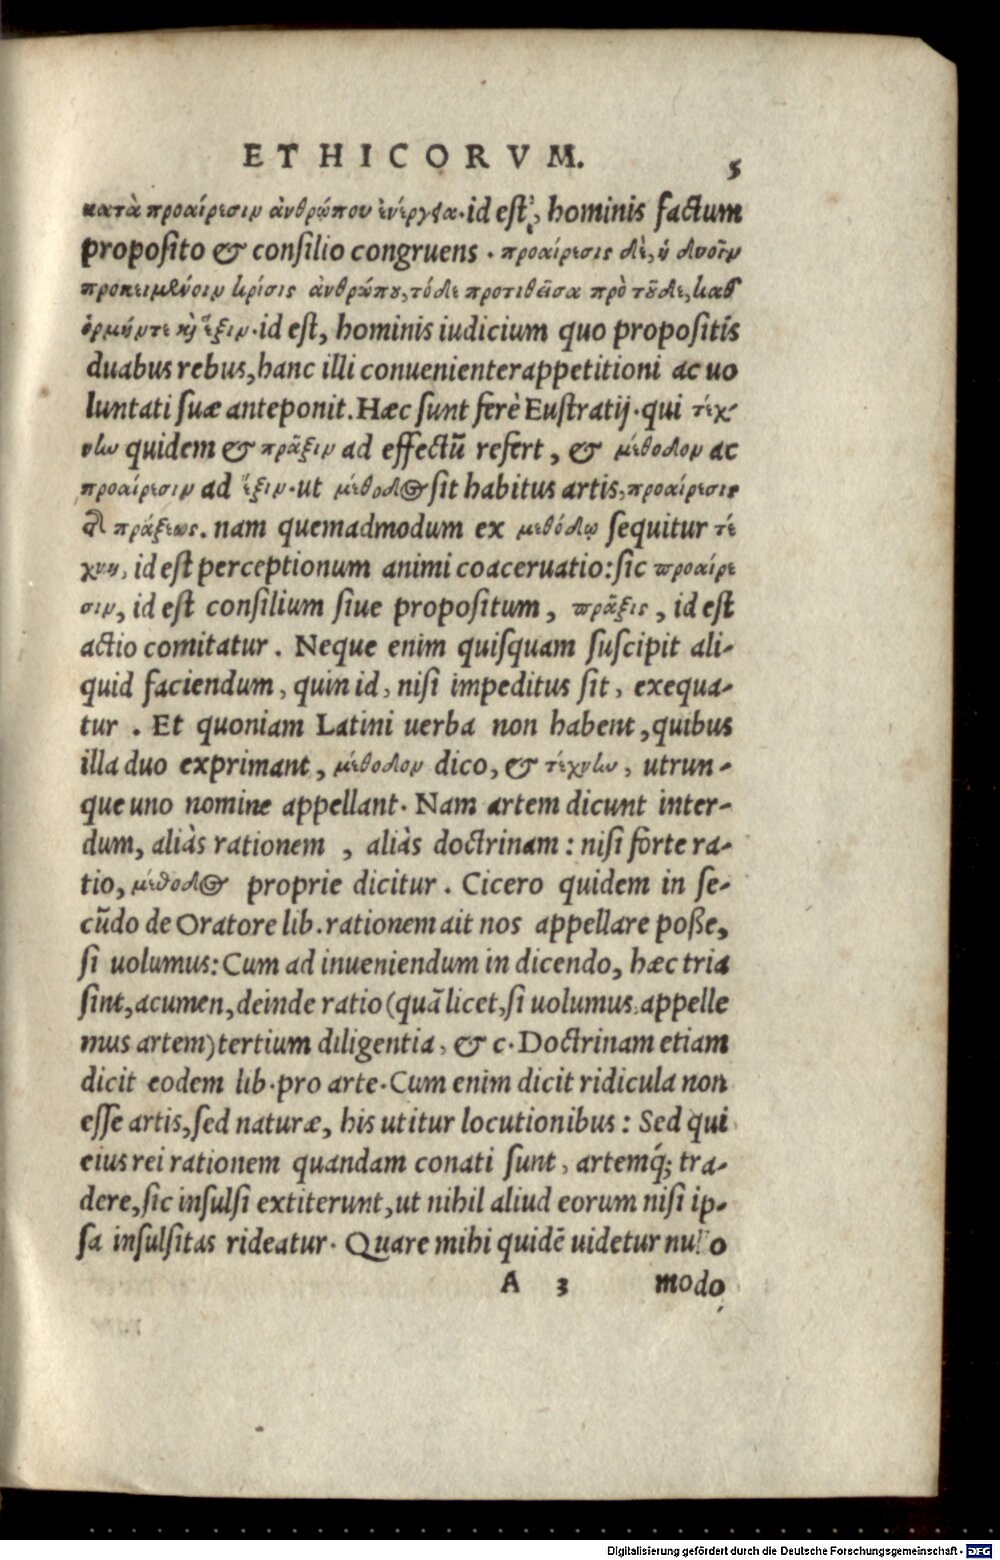 ETHICORVM. 5
κατὰ προαίρεσιν ἀνθρώπου ἐνέργεια. id est, hominis factum
proposito & consilio congruens. προαίρεσις δὲ, ἡ δυοῖν
προκειμένοιν κρίσις ἀνθρώπου, τόδε προτιθεῖσα πρὸ τοῦδε, καθ'
ὁρμήν τε καὶ ἕξιν. id est, hominis iudicium quo propositis
duabus rebus, hanc illi conuenienter appetitioni ac uo
luntati suæ anteponit. Hæc sunt ferè Eustratij. qui τέχ-
νην quidem & πρᾶξιν ad effectũ refert, & μέθοδον ac
προαίρεσιν ad ἕξιν. ut μέθοδος sit habitus artis, προαίρεσις
πράξεως. nam quemadmodum ex μεθόδῳ sequitur τέ
χνη, id est perceptionum animi coaceruatio: sic προαίρε
σιν, id est consilium siue propositum, πρᾶξις, id est
actio comitatur. Neque enim quisquam suscipit ali-
quid faciendum, quin id, nisi impeditus sit, exequa-
tur. Et quoniam Latini uerba non habent, quibus
illa duo exprimant, μέθοδον dico, & τέχνην, utrun-
que uno nomine appellant. Nam artem dicunt inter-
dum, aliàs rationem, aliàs doctrinam: nisi forte ra-
tio, μέθοδος proprie dicitur. Cicero quidem in se-
cũdo de Oratore lib. rationem ait nos appellare poße,
si uolumus: Cum ad inueniendum in dicendo, hæc tria
sint, acumen, deinde ratio (quã licet, si uolumus, appelle
mus artem) tertium diligentia, & c. Doctrinam etiam
dicit eodem lib. pro arte. Cum enim dicit ridicula non
esse artis, sed naturæ, his utitur locutionibus: Sed qui
eius rei rationem quandam conati sunt, artemq́; tra-
dere, sic insulsi extiterunt, ut nihil aliud eorum nisi ip-
sa insulsitas rideatur. Quare mihi quidẽ uidetur nullo
A 3 modo
Digitalisierung gefördert durch die Deutsche Forschungsgemeinschaft - DFG